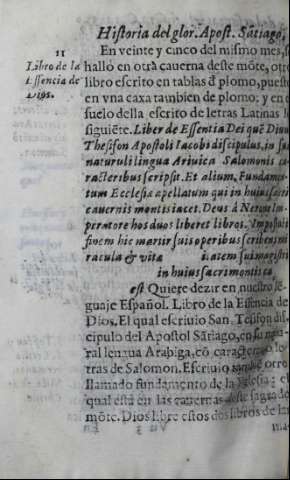 Historia del glor. Apost. Sātiago,
11
Libro de la
Essencia de
Dios.
En veinte y cinco del mismo mes, se
hallò en otra cauerna deste mōte, otro
libro escrito en tablas đ plomo, puesto
en vna caxa tambien de plomo; y en el
suelo della escrito de letras Latinas lo
siguiēte. Liber de Essentia Dei quē Diuus
Thesifon Apostoli Iacobi discipulus, in sua
naturali lingua Arauica Salomonis ca
racteribus scripsit. Et alium, Fundamen-
tum Ecclesiæ apellatum qui in huius sacri
cauernis montis iacet. Deus à Nerone Im-
peratore hos duos liberet libros. Imposuit
finem hic martir suis operibus scribens mi
racula & vita atem sui magistri
in huius sacri montis ca
est Quiere dezir en nuestro lē-
guaje Español. Libro de la Essencia de
Dios. El qual escriuio San Tesifon dis-
cipulo del Apostol Sātiago, en su natu-
ral lengua Arabiga, cō caracteres o le-
tras de Salomon. Escriuio tambiē otro
llamado fundamento de la Iglesia: el
qual està en las cauernas deste sagrado
mōte. Dios libre estos dos libros de las